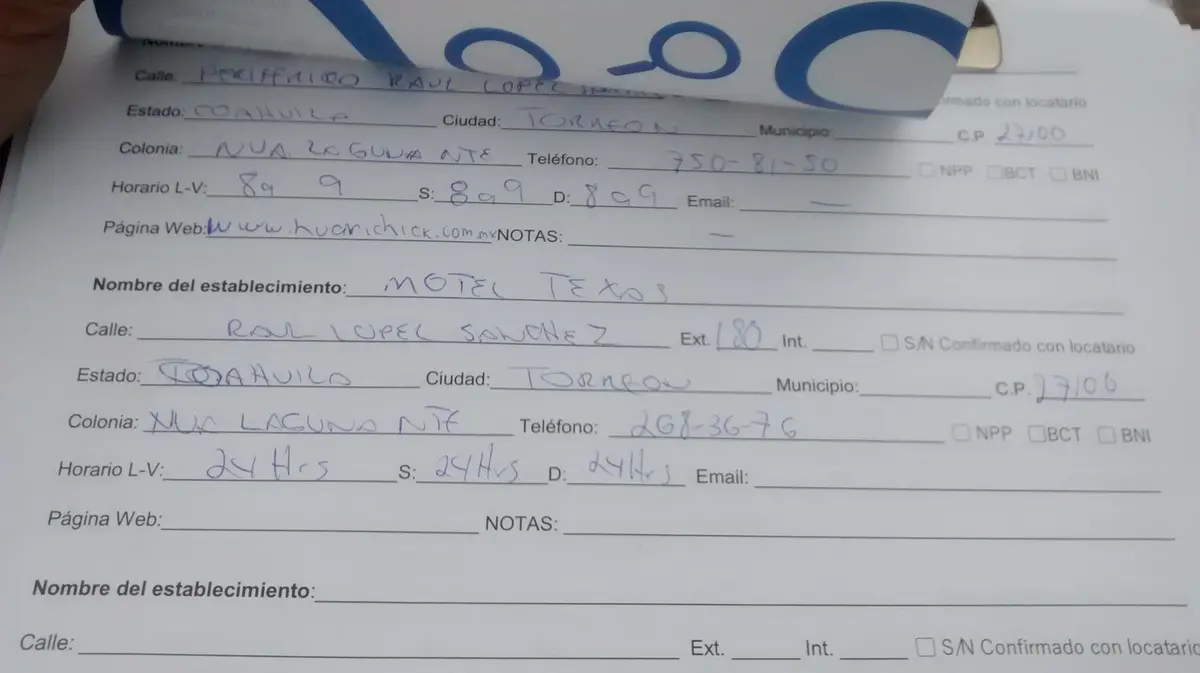 Calle: PERIFERICO RAUL LOPEZ
Estado: COAHUILA Ciudad: TORREON Municipio: C.P. 27100 rmado con locatario
Colonia: NVA. LAGUNA NTE Teléfono: 750-81-50 NPP BCT BNI
Horario L-V: 8 a 9 S: 8 a 9 D: 8 a 9 Email: —
Página Web: www.huarichick.com.mx NOTAS: —
Nombre del establecimiento: MOTEL TEXAS
Calle: RAUL LOPEZ SANCHEZ Ext. 180 Int. S/N Confirmado con locatario
Estado: COAHUILA Ciudad: TORREON Municipio: C.P. 27100
Colonia: NVA LAGUNA NTE Teléfono: 268-36-76 NPP BCT BNI
Horario L-V: 24 Hrs S: 24 Hrs D: 24 Hrs Email:
Página Web: NOTAS:
Nombre del establecimiento:
Calle: Ext. Int. S/N Confirmado con locatario